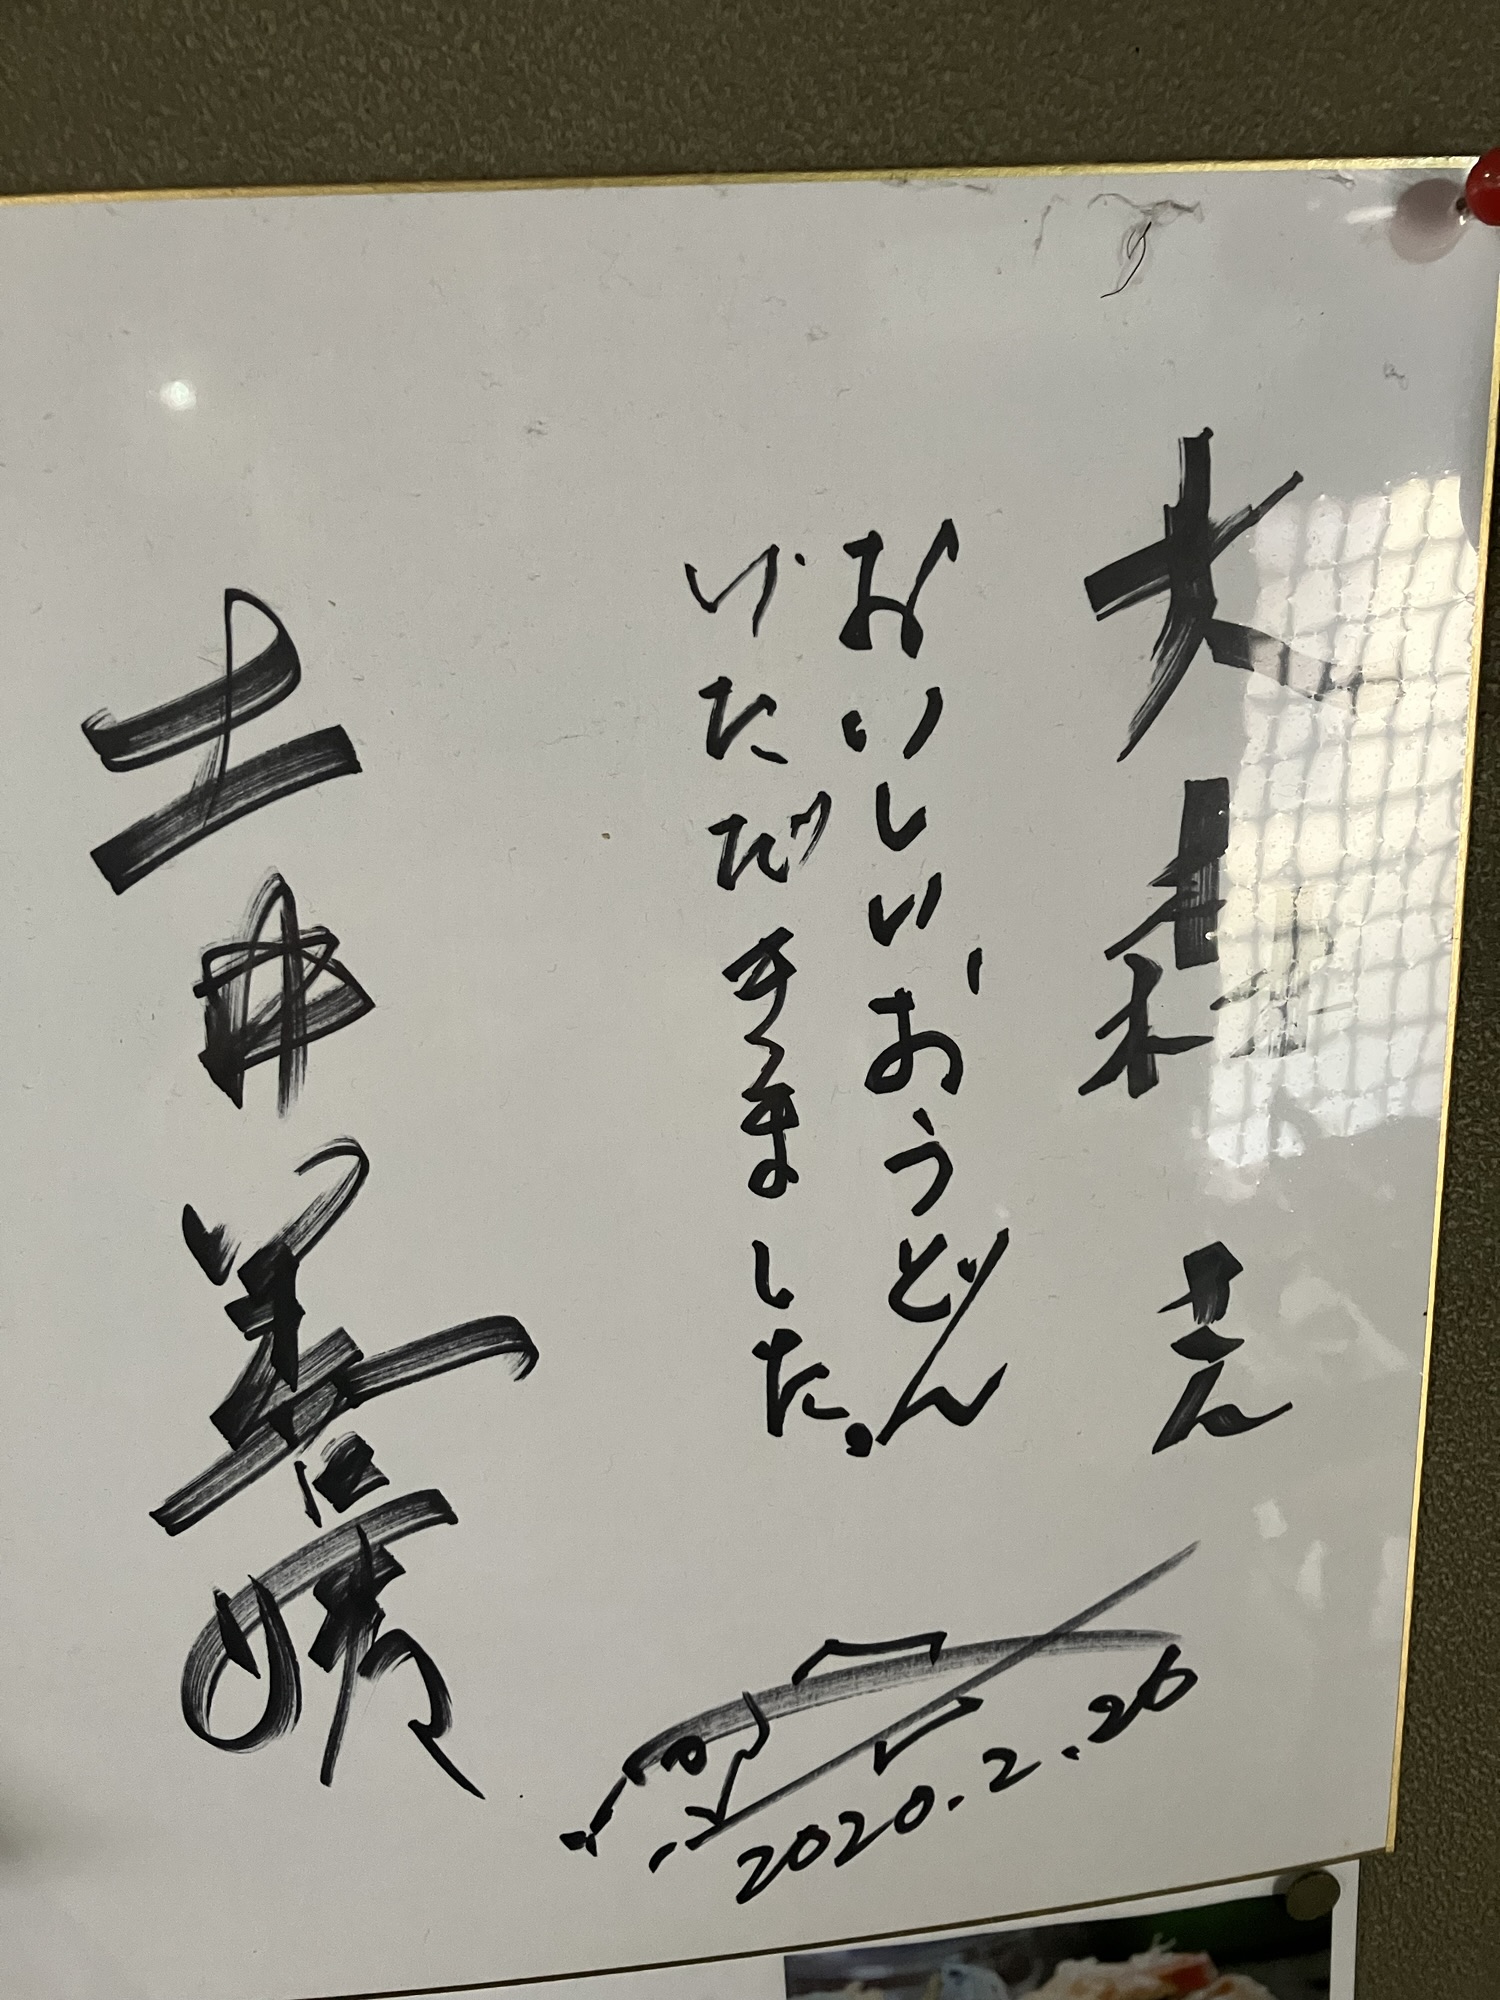 大森 さん
おいしいおうどん
いただきました。
土井善晴
2020.2.26